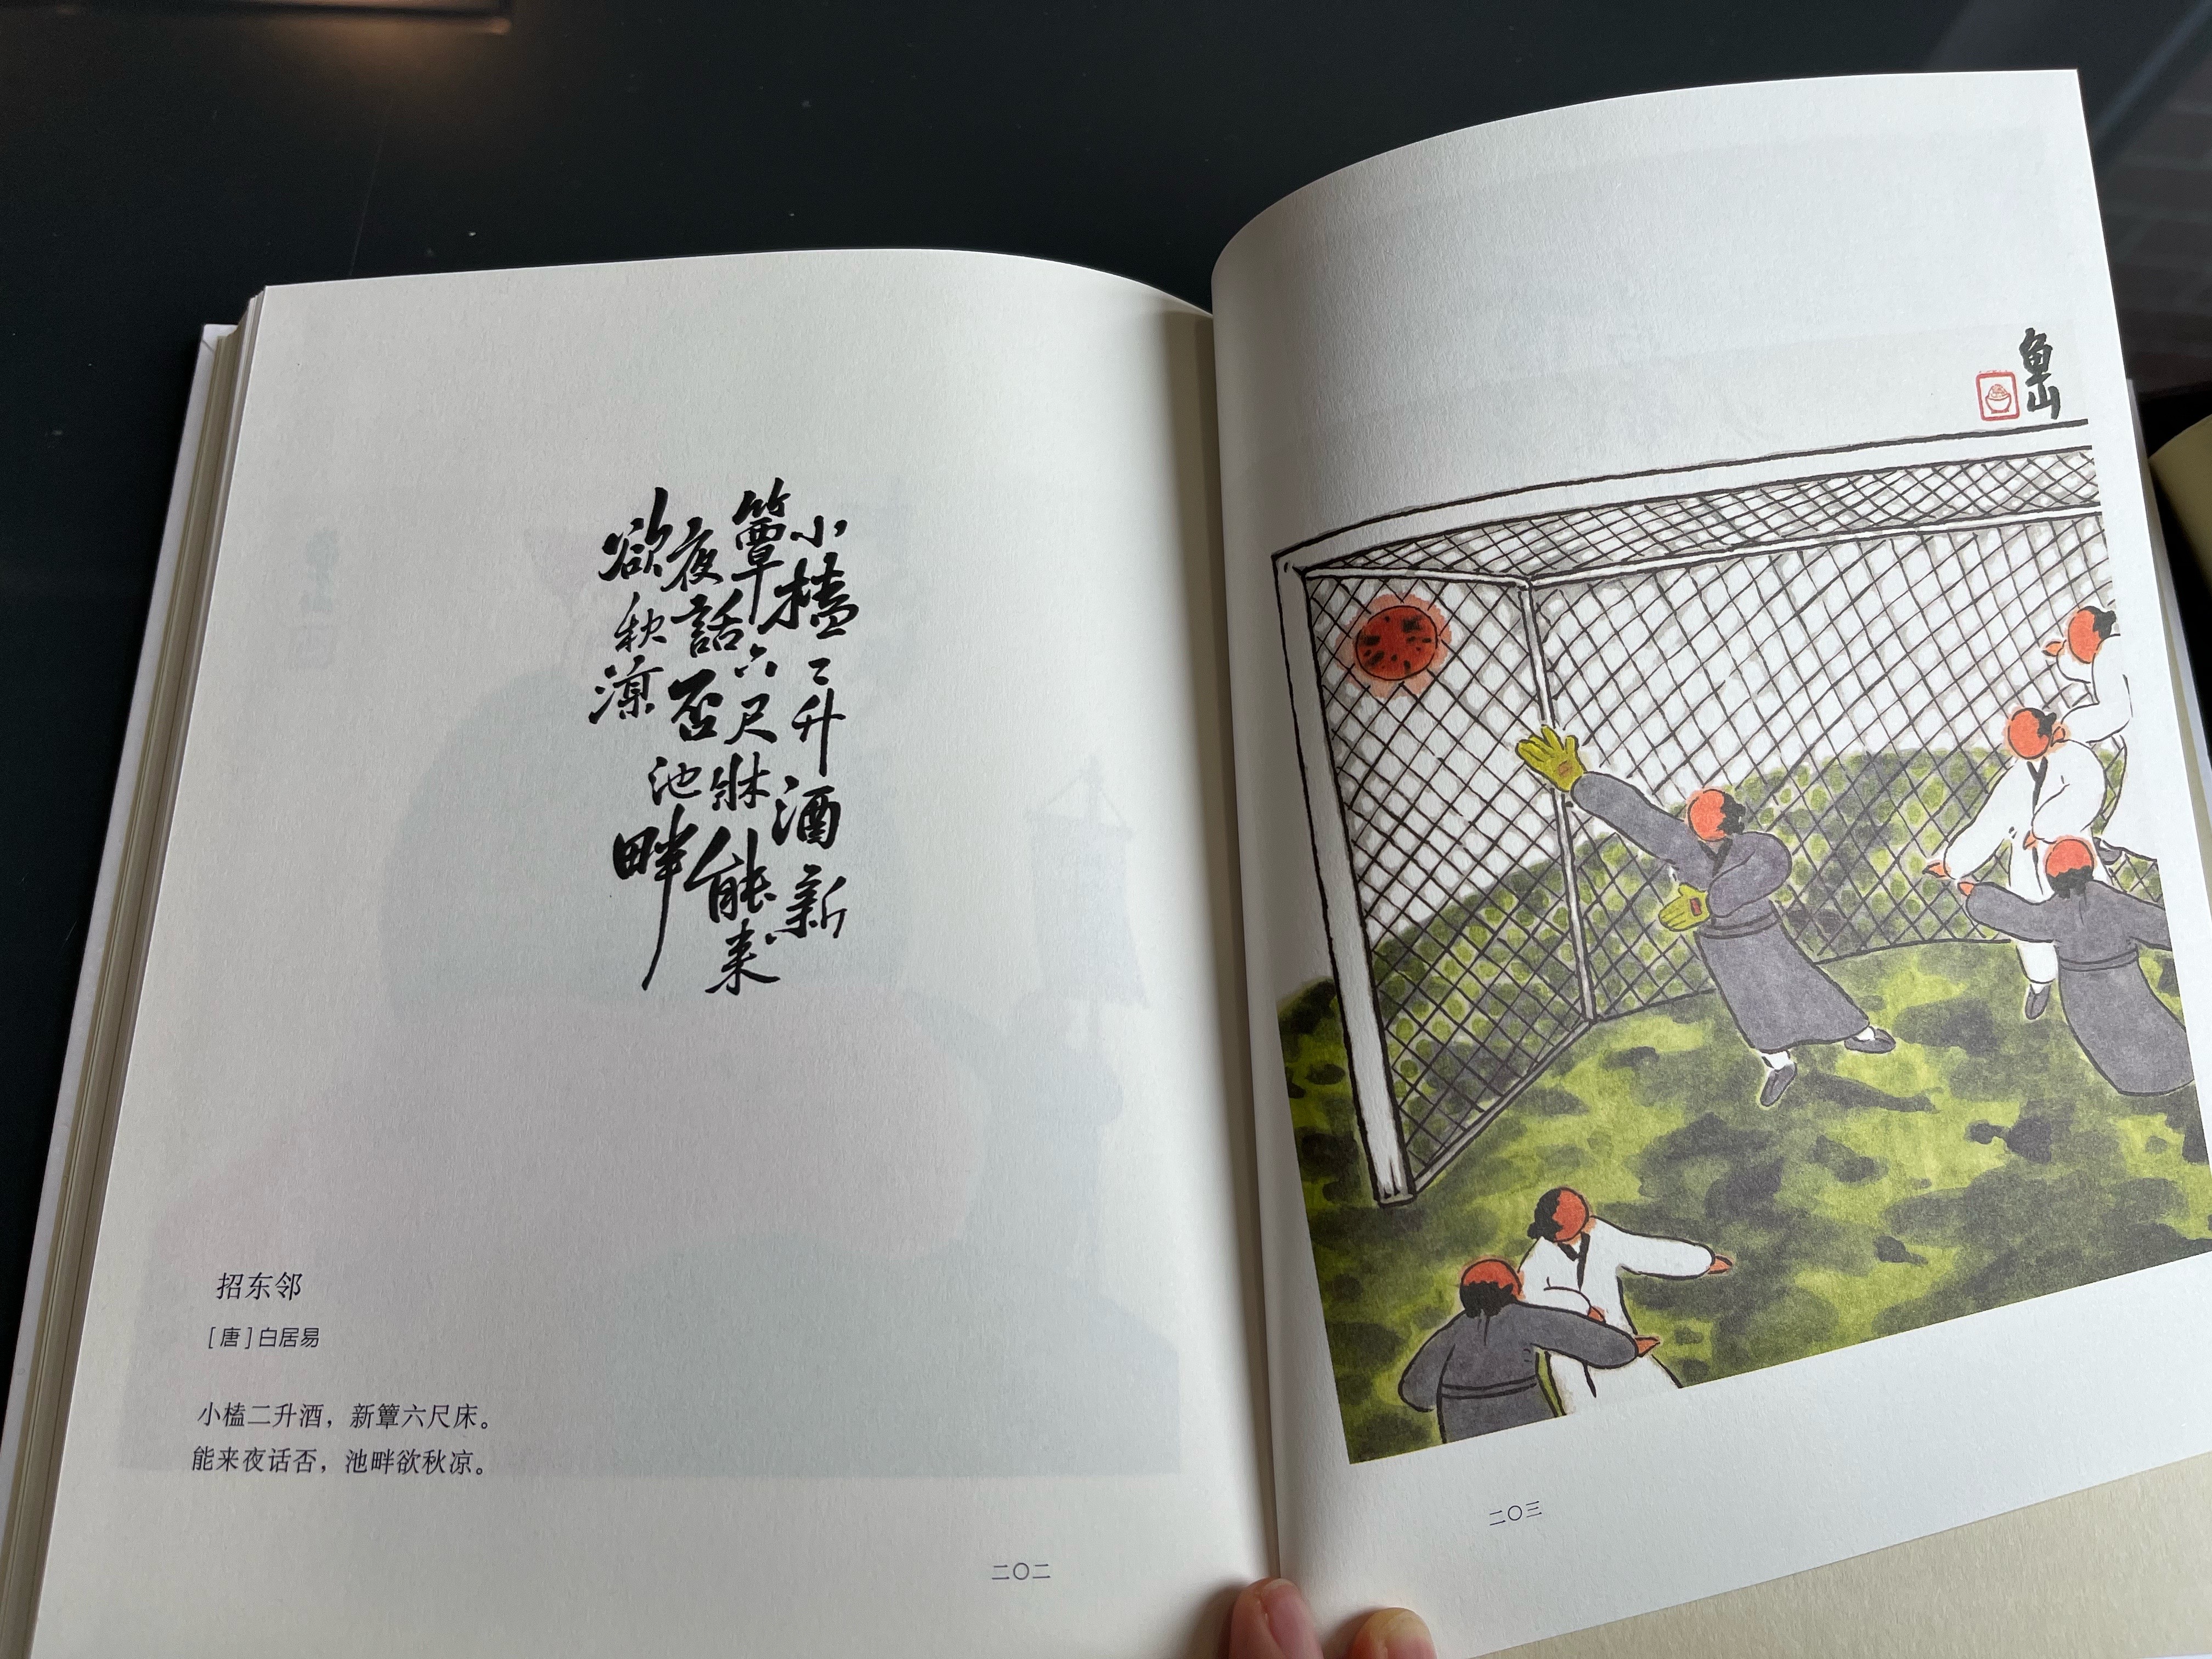 小榼二升酒新
簟六尺牀能来
夜話否池畔
欲秋凉
招东邻
［唐］白居易
小榼二升酒，新簟六尺床。
能来夜话否，池畔欲秋凉。
二〇二
山
二〇三